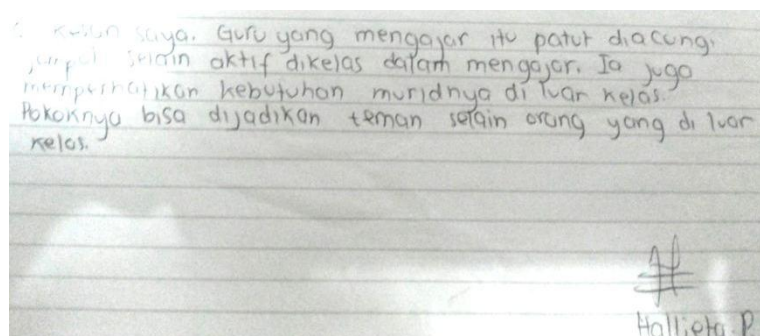 saya. Guru yang mengajar itu patut diacung.
jumpol selain aktif dikelas dalam mengajar. Ia juga
memperhatikan kebutuhan muridnya di luar kelas.
Pokoknya bisa dijadikan teman selain orang yang di luar
kelas.
Hallieta P